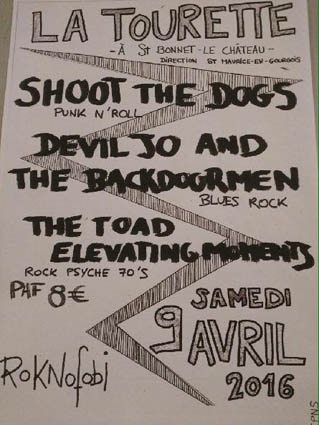 LA TOURETTE
- À St BONNET-LE CHÂTEAU -
DIRECTION ST MAURICE-EN-GOURGOIS
SHOOT THE DOGS
PUNK N'ROLL
DEVIL JO AND
THE BACKDOORMEN
BLUES ROCK
THE TOAD
ELEVATING MOMENTS
ROCK PSYCHE 70'S
PAF 8€
SAMEDI
9 AVRIL
2016
RoKNofobi
IPNS